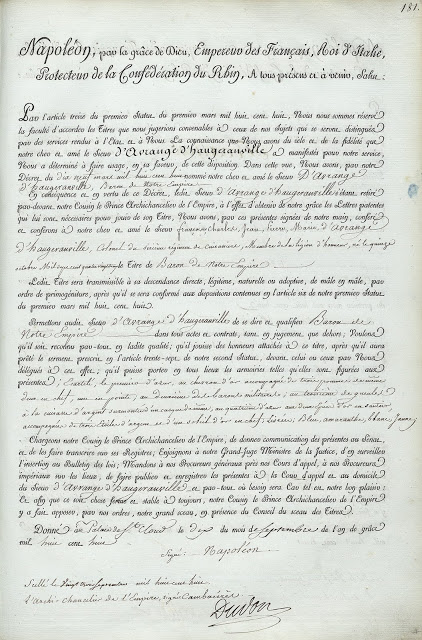 181.
Napoléon, par la grâce de Dieu, Empereur des Français, Roi d'Italie,
Protecteur de la Confédération du Rhin, A tous présens et à venir, Salut:
Par l'article treize du premier Statut du premier mars mil huit cent huit, Nous nous sommes réservé
la faculté d'accorder les Titres que nous jugerions convenables à ceux de nos Sujets qui se seront distingués
par des services rendus à l'Etat et à Nous. La connaissance que Nous avons du zèle et de la fidélité que
notre cher et amé le Sieur D'Avrange d'haugeranville a manifestés pour notre service,
Nous a déterminé à faire usage, en sa faveur, de cette disposition. Dans cette vue, Nous avons, par notre
Décret du dix neuf mars mil huit cent huit nommé notre cher et amé le Sieur D'Avrange
d'haugeranville, Baron de Notre Empire
En conséquence et en vertu de ce Décret, ledit Sieur d'Avrange d'haugeranville s'étant retiré
par-devant notre Cousin le Prince Archichancelier de l'Empire, à l'effet d'obtenir de notre grâce les Lettres patentes
qui lui sont nécessaires pour jouir de son Titre, Nous avons, par ces présentes signées de notre main, conféré
et conférons à notre cher et amé le Sieur françois, Charles, Jean, Pierre, Marie d'Avrange
d'haugeranville, Colonel du sixième régiment de Cuirassiers, Membre de la légion d'honneur, né le quinze
octobre Mil sept cent quatre vingt le Titre de Baron de Notre Empire.
Ledit Titre sera transmissible à sa descendance directe, légitime, naturelle ou adoptive, de mâle en mâle, par
ordre de primogéniture, après qu'il se sera conformé aux dispositions contenues en l'article six de notre premier Statut
du premier mars mil huit cent huit.
Permettons audit Sieur d'Avrange d'haugeranville de se dire et qualifier Baron de
Notre Empire dans tous actes et contrats, tant en jugement, que dehors; Voulons
qu'il soit reconnu par-tout en ladite qualité; qu'il jouisse des honneurs attachés à ce titre, après qu'il aura
prêté le serment prescrit en l'article trente-sept de notre second Statut, devant celui ou ceux par Nous
délégués à cet effet; qu'il puisse porter en tous lieux les armoiries telles qu'elles sont figurées aux
présentes; Ecartelé, le premier d'or, au chevron d'azur accompagné de trois
deux en chef, une en pointe; au deuxième des barons militaires; au troisième de gueules
à la d'argent au quatrième d'or au
accompagné de trois d'argent et d'un soleil d'or en chef; Livrée: Bleu, amaranthe, blanc, Jaune.
Chargeons notre Cousin le Prince Archichancelier de l'Empire, de donner communication des présentes au Sénat,
et de les faire transcrire sur ses Registres; Enjoignons à notre Grand-Juge Ministre de la Justice, d'en surveiller
l'insertion au Bulletin des lois; Mandons à nos Procureurs généraux près nos Cours d'appel, et à nos Procureurs
impériaux sur les lieux, de faire publier et enregistrer les présentes à la Cour d'appel et au domicile
du Sieur d'Avrange d'haugeranville et par-tout où besoin sera Car tel est notre bon plaisir:
Et afin que ce soit chose ferme et stable à toujours, notre Cousin le Prince Archichancelier de l'Empire
y a fait apposer, par nos ordres, notre grand sceau, en présence du Conseil du Sceau des Titres.
Donné en Palais de St Cloud le dix du mois de Septembre de l'an de grâce
mil huit cent huit.
Signé: Napoléon.
Scellé le vingt trois septembre mil huit cent huit.
l'archi-Chancelier de l'Empire, signé Cambacérès
Dudon